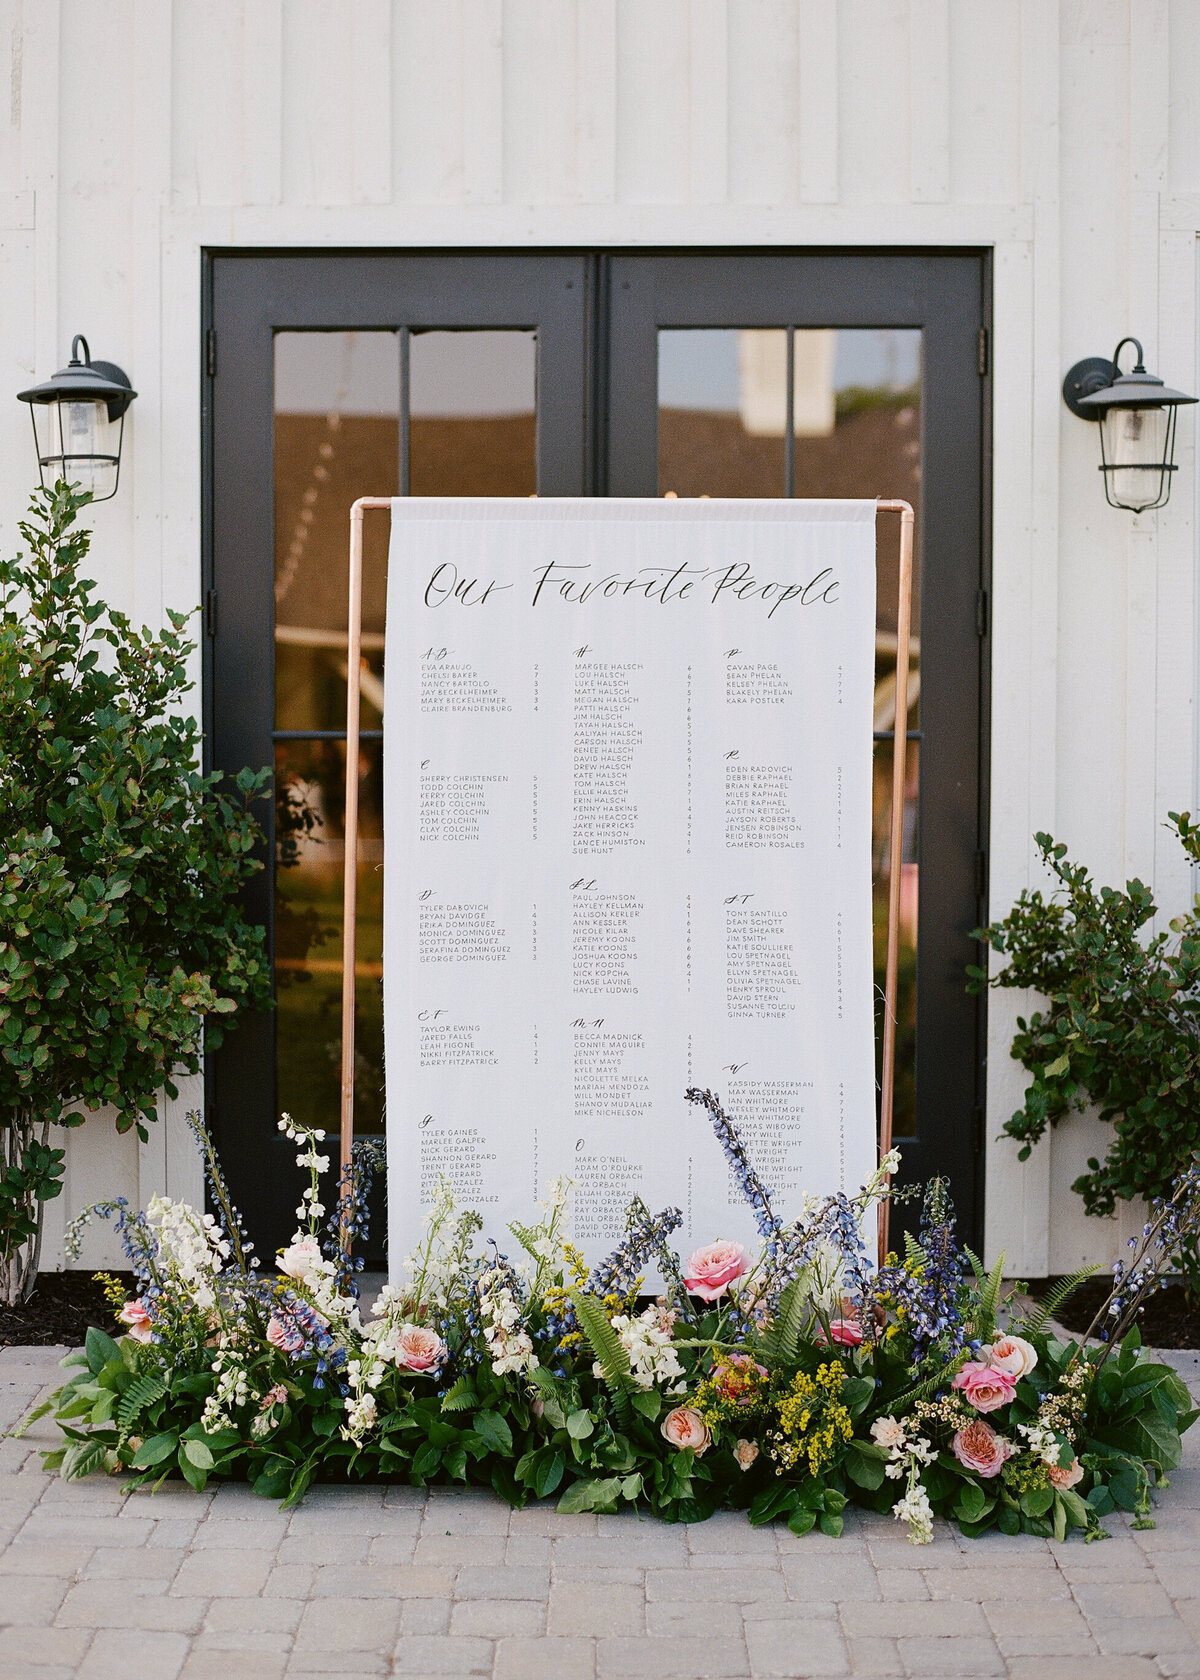 Our Favorite People
A-B
EVA ARAUJO 2
CHELSI BAKER 7
NANCY BARTOLO 3
JAY BECKELHEIMER 3
MARY BECKELHEIMER 3
CLAIRE BRANDENBURG 4
C
SHERRY CHRISTENSEN 5
TODD COLCHIN 5
KERRY COLCHIN 5
JARED COLCHIN 5
ASHLEY COLCHIN 5
TOM COLCHIN 5
CLAY COLCHIN 5
NICK COLCHIN 5
D
TYLER DABOVICH 1
BRYAN DAVIDGE 4
ERIKA DOMINGUEZ 3
MONICA DOMINGUEZ 3
SCOTT DOMINGUEZ 3
SERAFINA DOMINGUEZ 3
GEORGE DOMINGUEZ 3
E-F
TAYLOR EWING 1
JARED FALLS 4
LEAH FIGONE 1
NIKKI FITZPATRICK 2
BARRY FITZPATRICK 2
G
TYLER GAINES 1
MARLEE GALPER 1
NICK GERARD 7
SHANNON GERARD 7
TRENT GERARD 7
OWEN GERARD 7
RITZ GONZALEZ 3
GONZALEZ 3
GONZALEZ 3
H
MARGEE HALSCH 6
LOU HALSCH 6
LUKE HALSCH 7
MATT HALSCH 5
MEGAN HALSCH 7
PATTI HALSCH 6
JIM HALSCH 6
TAYAH HALSCH 5
AALIYAH HALSCH 5
CARSON HALSCH 5
RENEE HALSCH 5
DAVID HALSCH 6
DREW HALSCH 1
KATE HALSCH 6
TOM HALSCH 6
ELLIE HALSCH 7
ERIN HALSCH 1
KENNY HASKINS 4
JOHN HEACOCK 4
JAKE HERRICKS 5
ZACK HINSON 4
LANCE HUMISTON 1
SUE HUNT 6
J-L
PAUL JOHNSON 4
HAYLEY KELLMAN 4
ALLISON KERLER 1
ANN KESSLER 6
NICOLE KILAR 4
JEREMY KOONS 6
KATIE KOONS 6
JOSHUA KOONS 6
LUCY KOONS 6
NICK KOPCHA 4
CHASE LAVINE 1
HAYLEY LUDWIG 1
M-N
BECCA MADNICK 4
CONNIE MAGUIRE 2
JENNY MAYS 6
KELLY MAYS 6
KYLE MAYS 6
NICOLETTE MELKA 2
MARIAH MENDOZA
WILL MONDET
SHANOV MUDALIAR
MIKE NICHELSON 3
O
MARK O'NEIL 4
ADAM O'ROURKE 1
LAUREN ORBACH 2
ORBACH 2
ELIJAH ORBACH 2
KEVIN ORBACH 2
RAY ORBACH 2
SAUL ORBACH 2
DAVID ORBACH 2
GRANT ORBACH 2
P
CAVAN PAGE 4
SEAN PHELAN 7
KELSEY PHELAN 7
BLAKELY PHELAN 7
KARA POSTLER 4
R
EDEN RADOVICH 5
DEBBIE RAPHAEL 2
BRIAN RAPHAEL 2
MILES RAPHAEL 2
KATIE RAPHAEL 1
AUSTIN REITSCH 4
JAYSON ROBERTS 1
JENSEN ROBINSON 1
REID ROBINSON 1
CAMERON ROSALES 4
S-T
TONY SANTILLO 4
DEAN SCHOTT 6
DAVE SHEARER 6
JIM SMITH 1
KATIE SOULLIERE 5
LOU SPETNAGEL 5
AMY SPETNAGEL 5
ELLYN SPETNAGEL 5
OLIVIA SPETNAGEL 5
HENRY SPROUL 4
DAVID STERN 3
SUSANNE TOLCIU 4
GINNA TURNER 5
W
KASSIDY WASSERMAN 4
MAX WASSERMAN 4
IAN WHITMORE 7
WESLEY WHITMORE 7
SARAH WHITMORE 7
THOMAS WIBOWO 2
WILLE 4
WRIGHT 5
WRIGHT 5
WRIGHT 5
WRIGHT 5
WRIGHT 5
WRIGHT 5